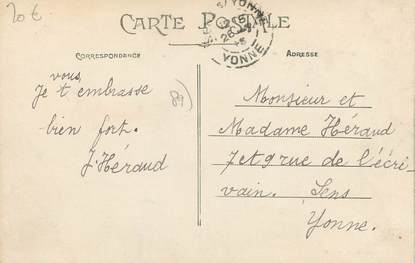 20 €
CARTE POSTALE
S/YONNE
15
26
YONNE
CORRESPONDANCE
ADRESSE
vous
Je t'embrasse
bien fort.
J. Héraud
89
Monsieur et
Madame Héraud
7 et 9 rue de l'écri-
vain. Sens
Yonne.